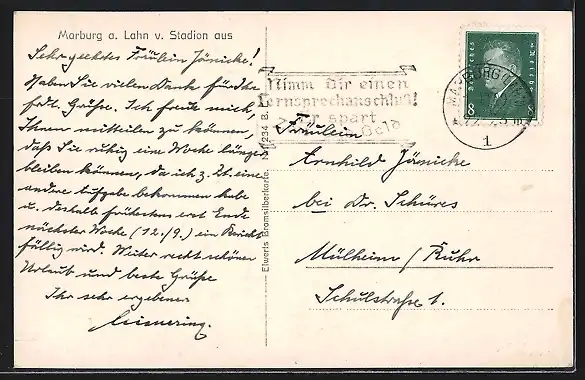 Marburg a. Lahn v. Stadion aus
Sehr geehrtes Fräulein Jänicke!
Haben Sie vielen Dank für Ihre
frdl. Grüße. Ich freue mich,
Ihnen mitteilen zu können,
daß Sie ruhig eine Woche länger
bleiben können, da ich z. Zt. eine
andere Aufgabe bekommen habe
u. deshalb frühestens erst Ende
nächster Woche (12./9.) ein Bericht
fällig wird. Weiter recht schönen
Urlaub und beste Grüße
Ihr sehr ergebener
Elwerts Bromsilberkarte. No. 234 B.
Nimm dir einen
Fernsprechanschluß!
Er spart
Zeit Geld
Deutsches Reich
8
MARBURG
1
Fräulein
Ernhild Jänicke
bei Dr. Schüres
Mülheim / Ruhr
Schulstraße 1.